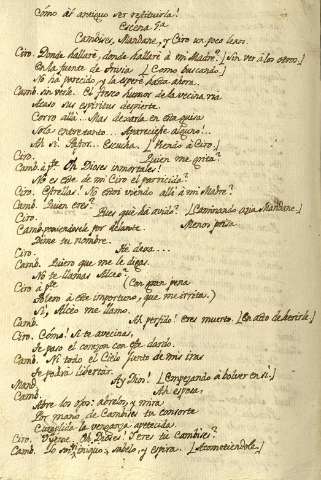 Cómo al antiguo ser restituirla!
Escena 7.ª
Cambises, Mandane, y Ciro un poco lexos.
Ciro. Donde hallaré, donde hallaré à mi Madre? [Sin ver à los otros.]
En la fuente de Trivia [Como buscando.]
No ha parecido y la esperé hasta ahora
Camb. sin verle. El fresco humor de la vecina ria
Acaso sus espiritus despierte.
Corro allá... Mas dexarla en esta guisa
Sola entretanto... Apareciese alguno!...
Ah si! Pastor... Escucha. [Viendo à Ciro.]
Ciro. Quien me grita?
Camb. à p.te Oh Dioses inmortales!
No es este de mi Ciro el parricida?
Ciro. Estrellas! No estoi viendo allà à mi Madre?
Camb. Quien eres?
Ciro. Pues qué há avido? [Caminando azia Mandane.]
Camb. poniendosele por delante. Menos prisa.
Dime tu nombre.
Ciro. He dexa...
Camb. Quiero que me le digas.
No te llamas Alceo?
Ciro à p.te (Con gran pena
Tolero à este importuno, que me irrita.)
Si, Alceo me llamo.
Camb. Ah perfido! eres muerto. [En acto de herirle.]
Ciro. Cómo! Si te avecinas,
Te paso el corazon con este dardo.
Camb. Ni todo el Cielo junto de mis iras
Te podrá libertar.
Mand. Ay Dios! [Empezando à bolver en si.]
Camb. Ah esposa,
Abre los ojos: abrelos, y mira
Por mano de Cambises tu consorte
Cumplida la venganza apetecida.
Ciro. Oyeme. Oh, Dioses! I eres tu Cambises?
Camb. Lo soi, iniquo; sabelo, y espira. [Acometiendole.]